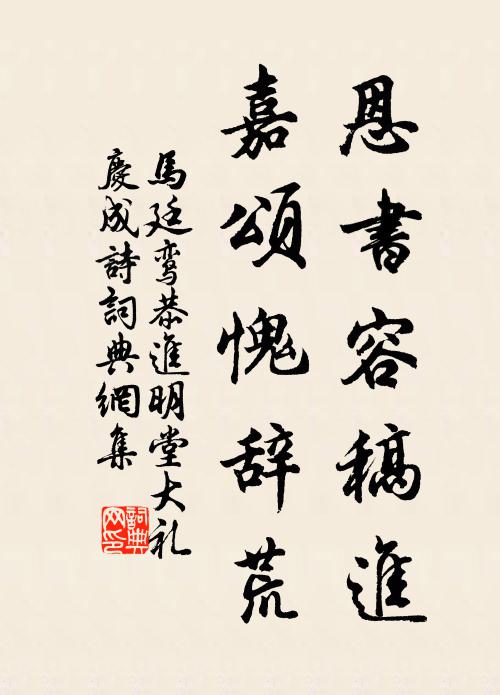 恩書容稿進
嘉頌愧辞荒
馬廷鸾恭進明堂大礼
慶成詩詞典網集
詞典网印